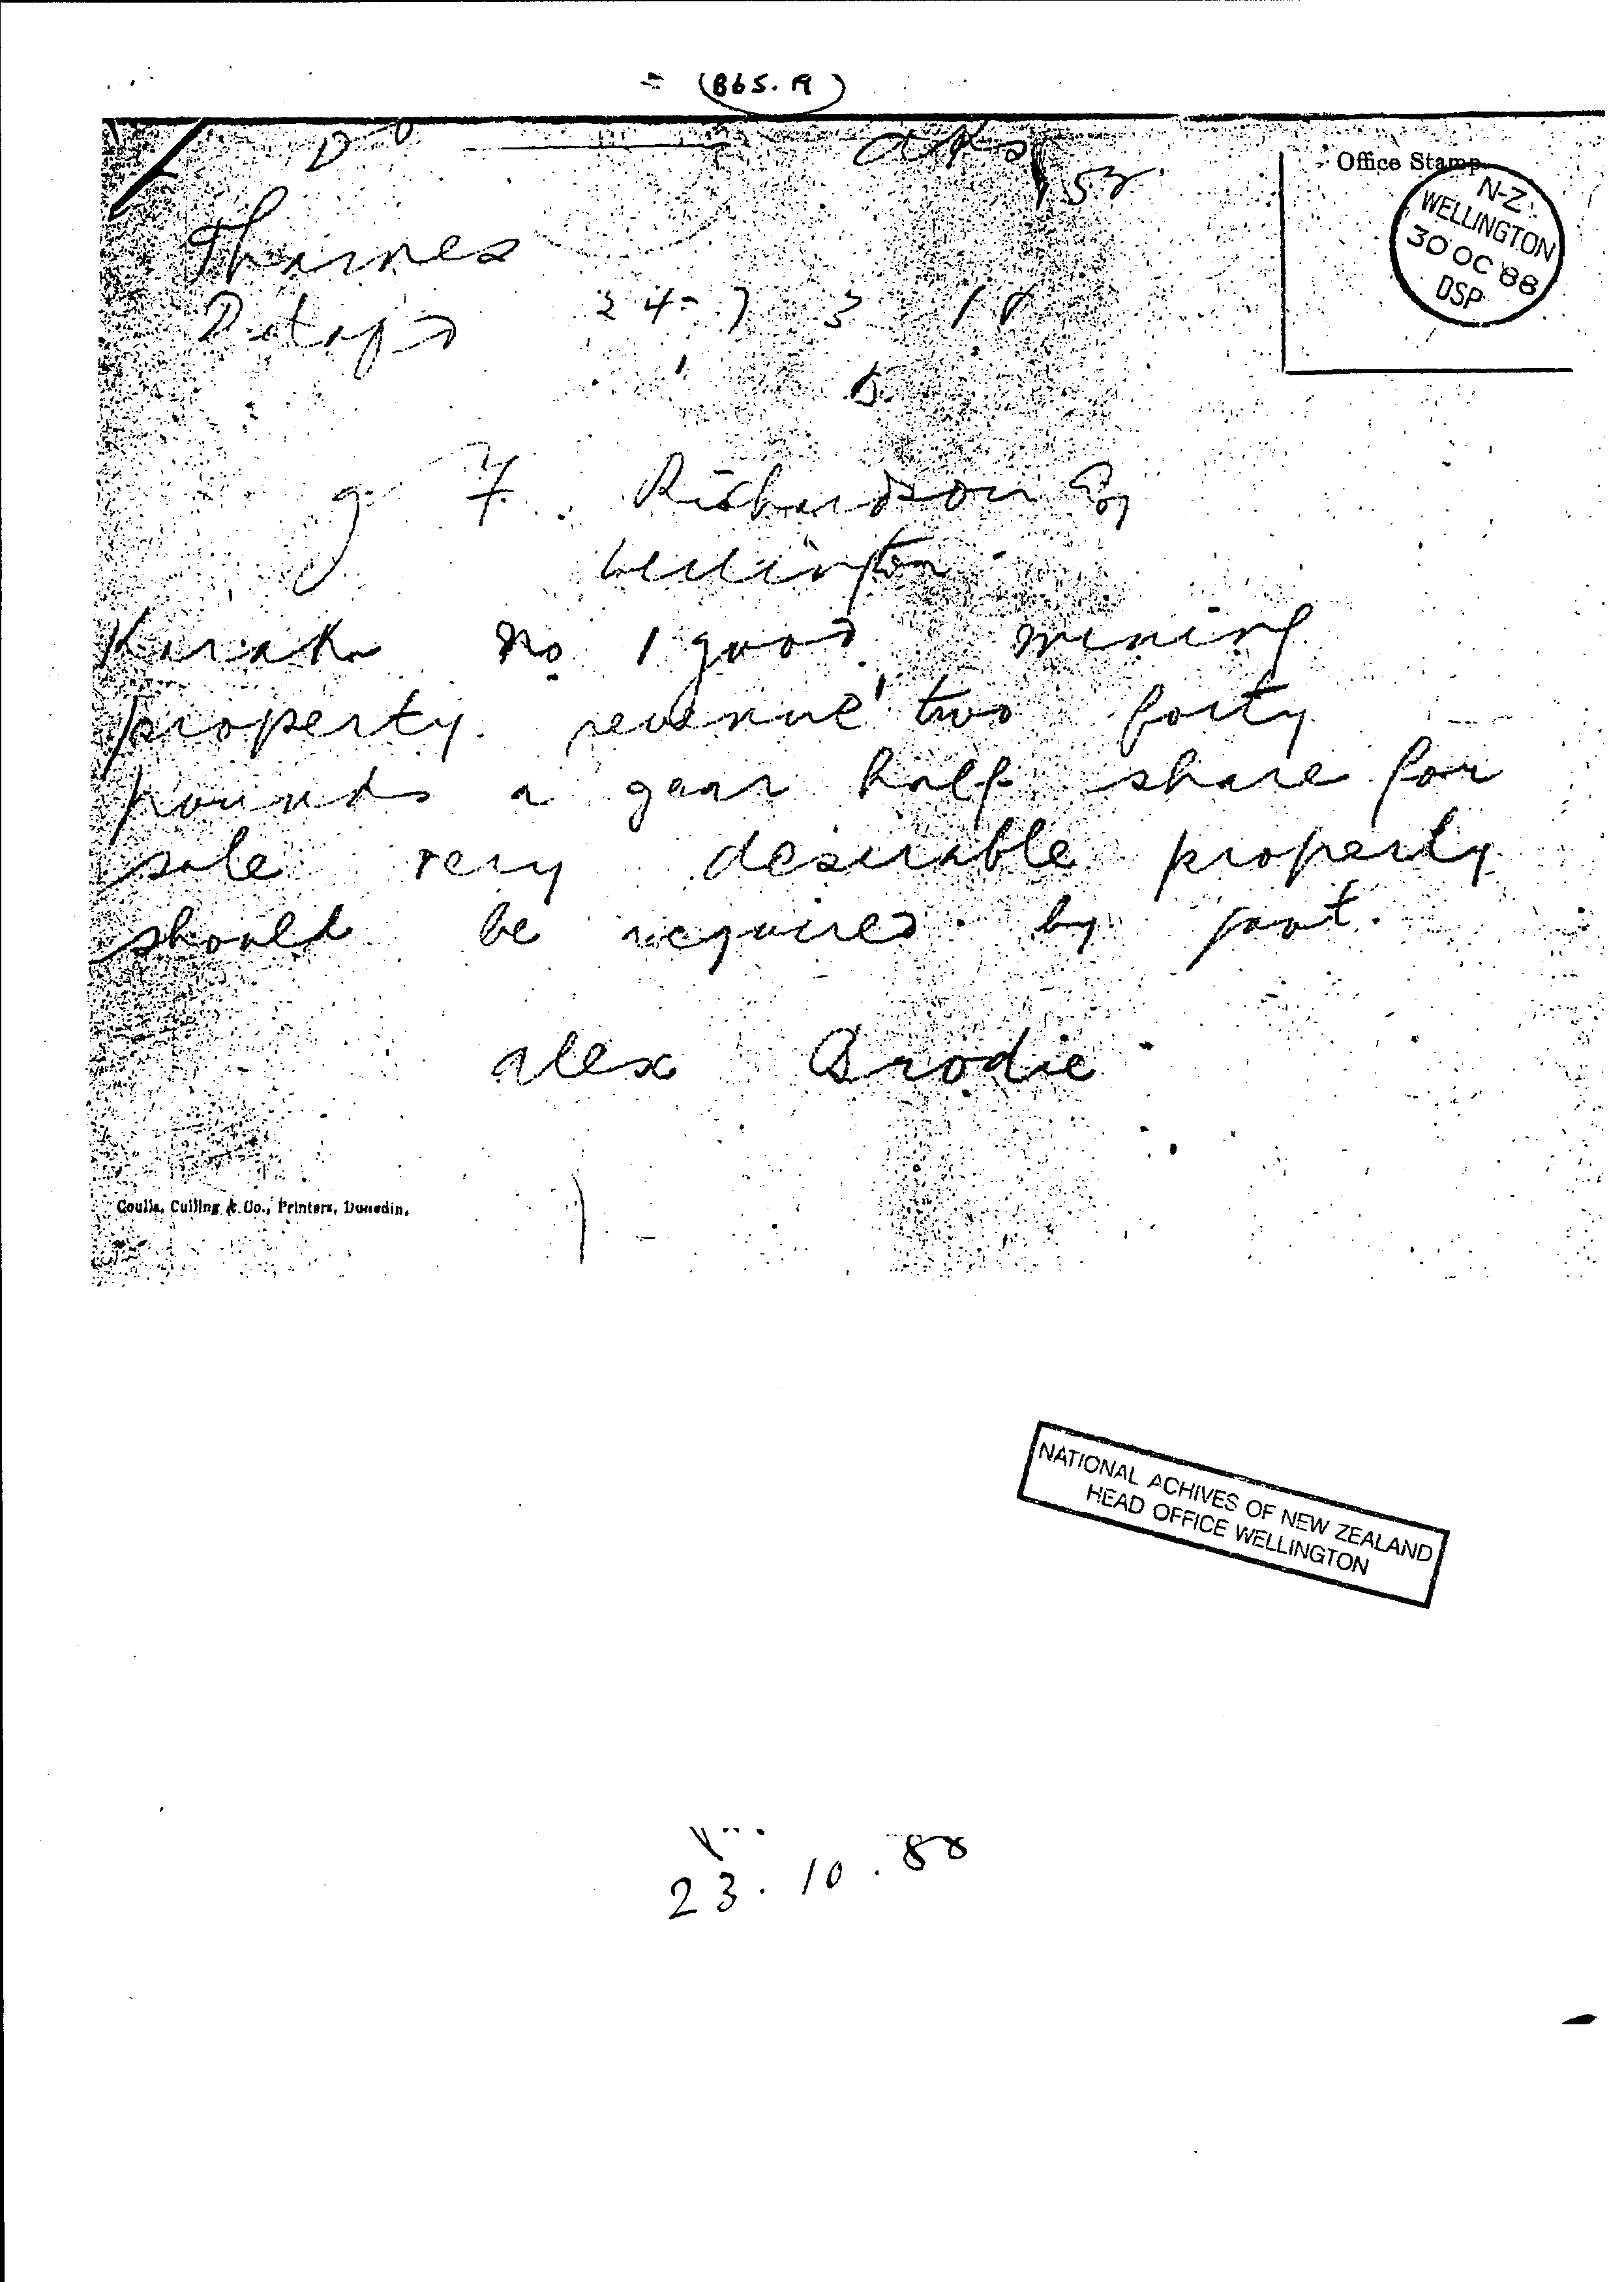 (B65.A)
Office Stamp
N-Z
WELLINGTON
30 OC 88
DSP
Thames
24- 7 3 18
5
g. F. Richardson Esq
Wellington
Karaka No 1 good mining
property revenue two forty
pounds a year half share for
sale very desirable property
should be required by govt.
Alex Brodie
Coulls, Culling & Co., Printers, Dunedin.
NATIONAL ACHIVES OF NEW ZEALAND
HEAD OFFICE WELLINGTON
23.10.88